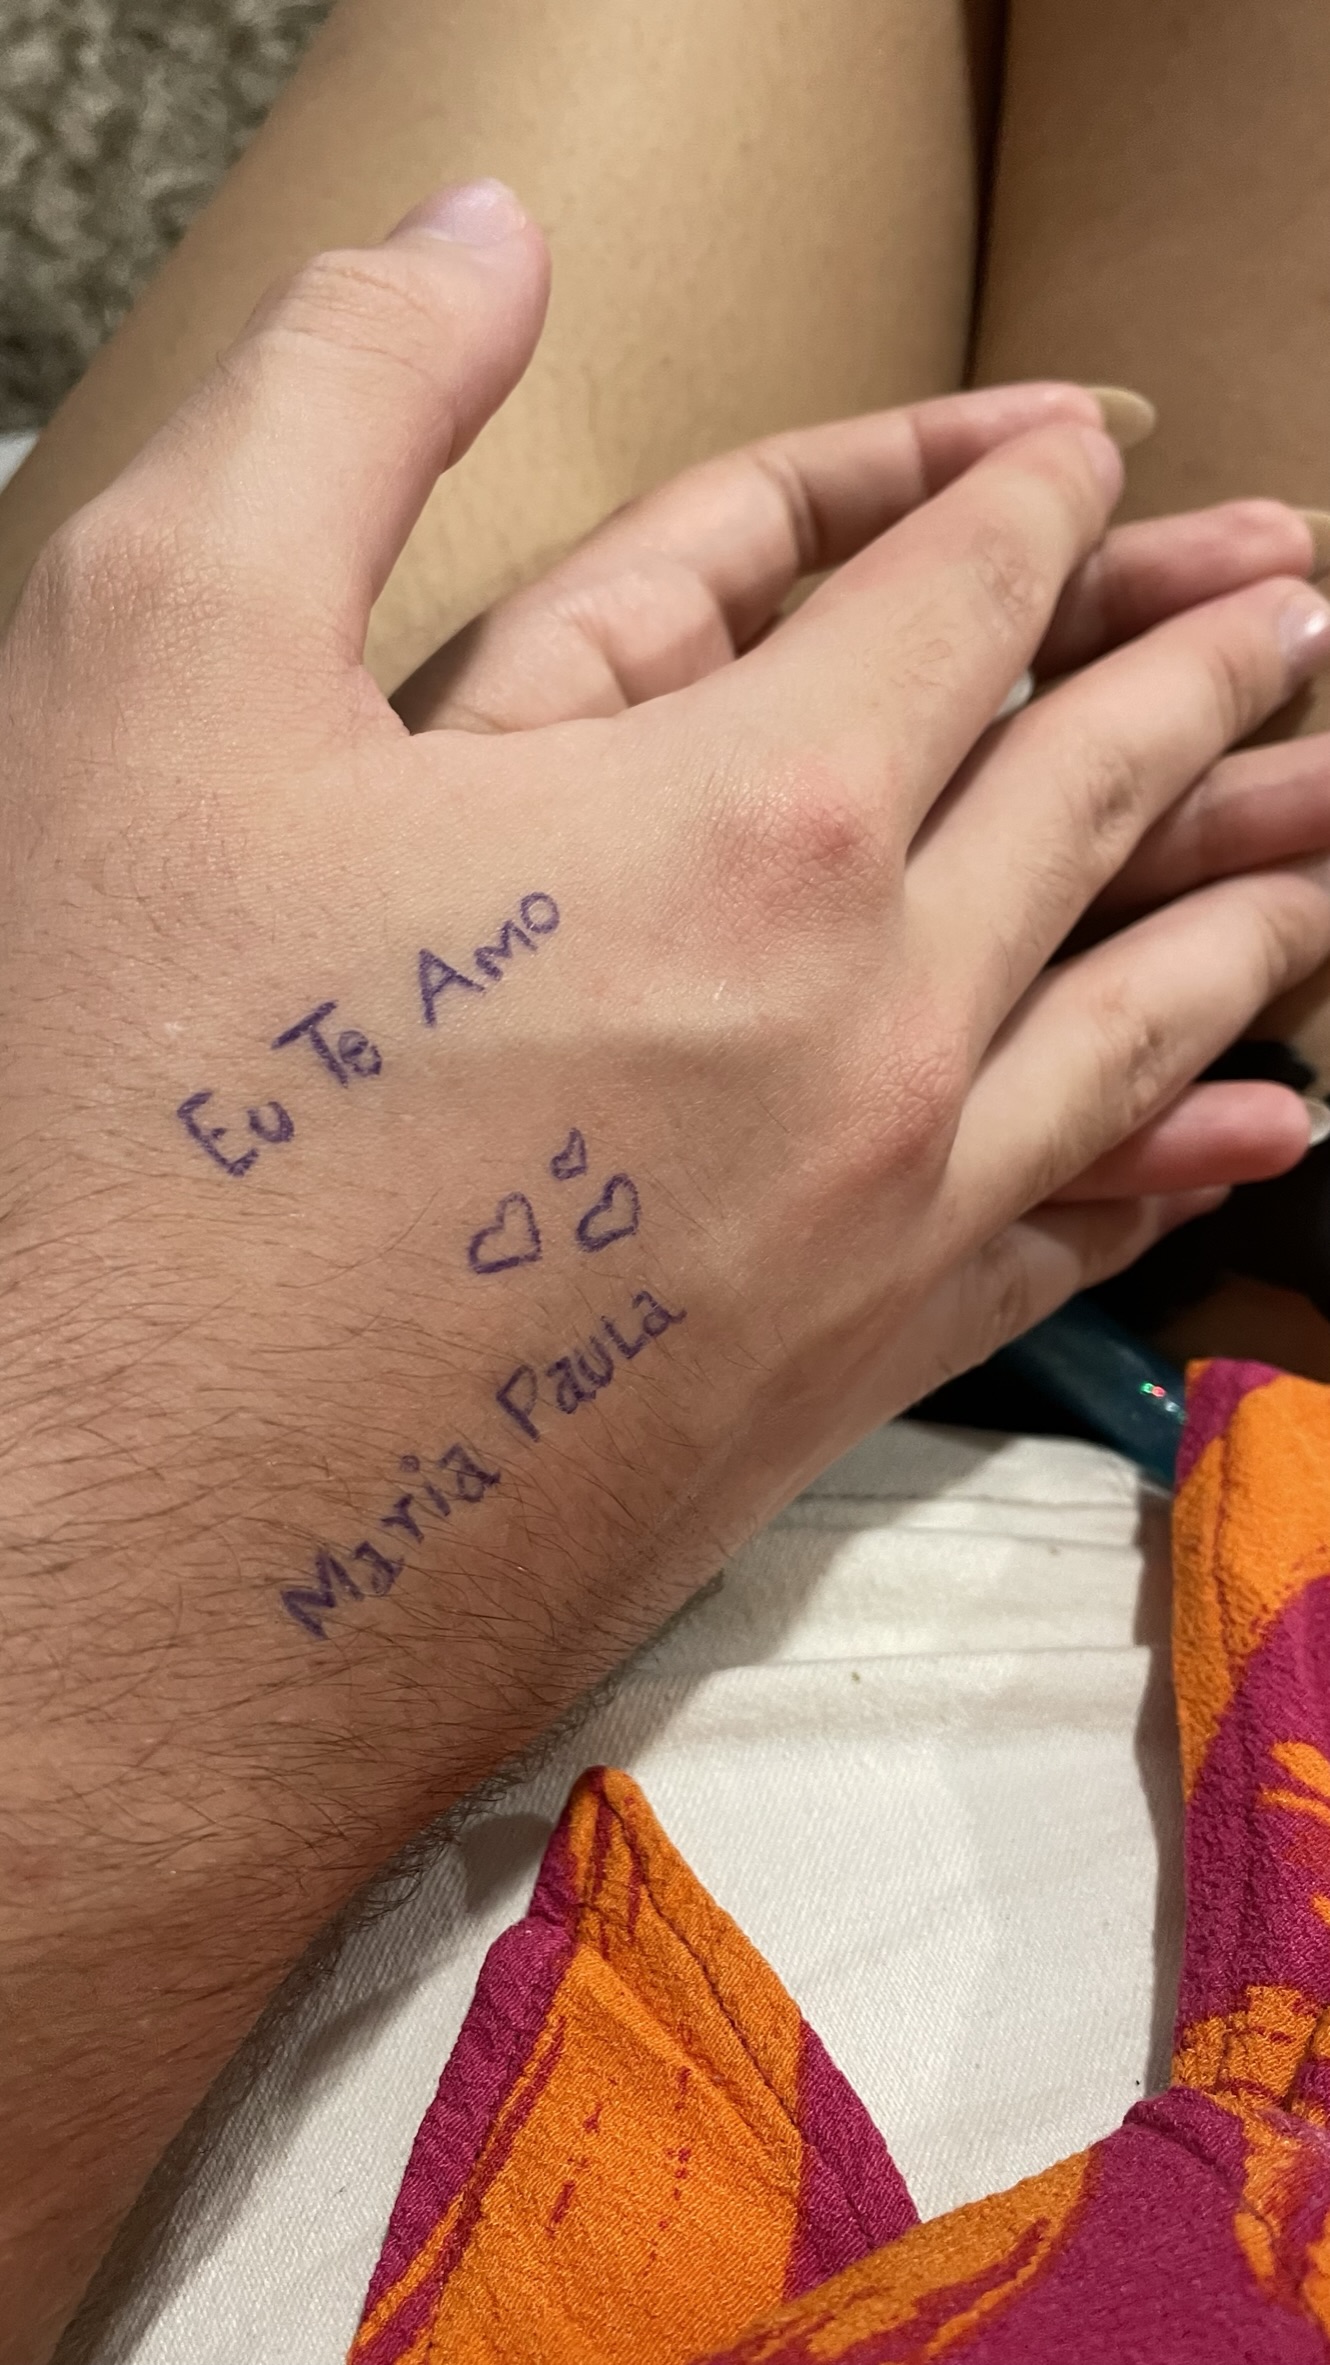 Eu Te Amo
Maria Paula